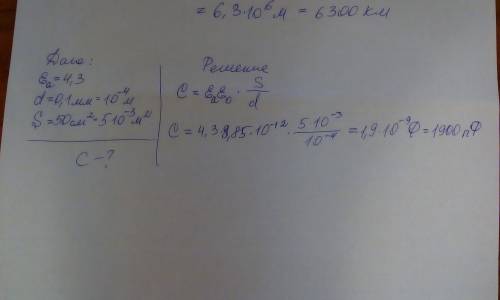 = 6,3·10⁶ м = 6300 км
Дано:
εₐ = 4,3
d = 0,1 мм = 10⁻⁴ м
S = 50 см² = 5·10⁻³ м²
C - ?
Решение
C = εₐε₀ · S/d
C = 4,3·8,85·10⁻¹² · 5·10⁻³/10⁻⁴ = 1,9·10⁻⁹ Ф = 1900 пФ